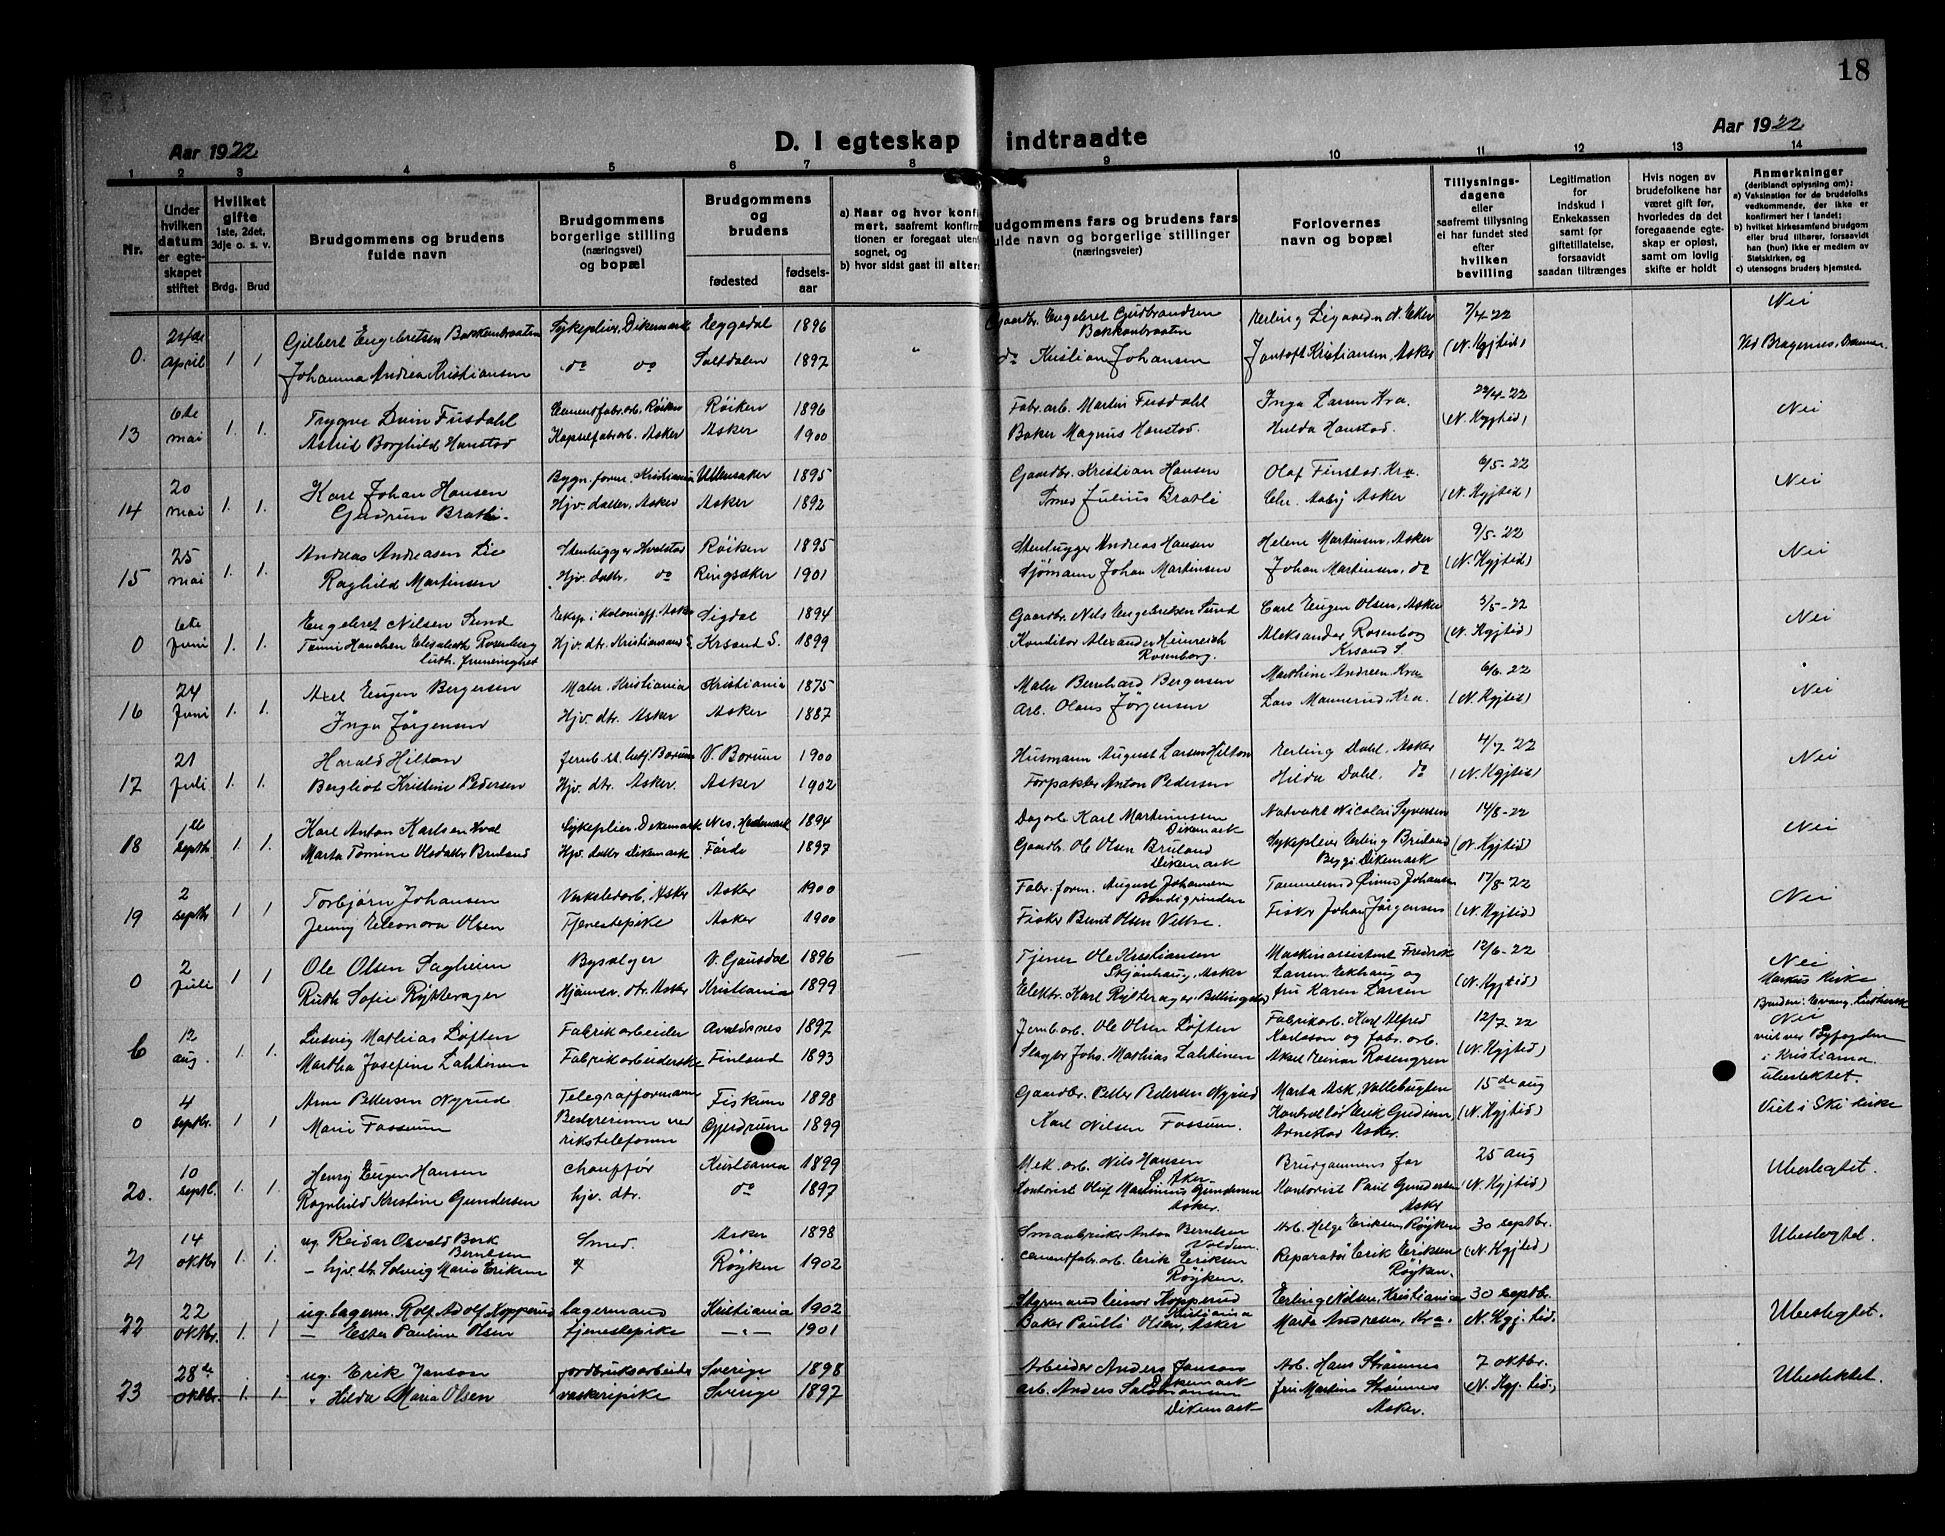 18
Aar 1922
D. I egteskap indtraadte
Aar 1922
1 2 3 4 5 6 7 8 9 10 11 12 13 14
Nr.
Under hvilken datum er egteskapet stiftet
Hvilket gifte 1ste, 2det, 3dje o. s. v.
Brdg. Brud
Brudgommens og brudens fulde navn
Brudgommens borgerlige stilling (næringsvei) og bopæl
Brudgommens og brudens
fødested
fødselsaar
a) Naar og hvor konfirmert, saafremt konfirmationen er foregaat utensognet, og
b) hvor sidst gaat til alters
Brudgommens fars og brudens fars fulde navn og borgerlige stillinger (næringsveier)
Forlovernes navn og bopæl
Tillysningsdagene eller saafremt tillysning ei har fundet sted efter hvilken bevilling
Legitimation for indskud i Enkekassen samt for giftetillatelse, forsaavidt saadan tiltrænges
Hvis nogen av brudefolkene har været gift før, hvorledes da det foregaaende egteskap er opløst, samt om lovlig skifte er holdt
Anmerkninger (deriblandt oplysning om):
a) Vaksination for de brudefolks vedkommende, der ikke er konfirmert her i landet;
b) hvilket kirkesamfund brudgom eller brud tilhører, forsaavidt han (hun) ikke er medlem av Statskirken, og
c) utensogns bruders hjemsted.
0. 24de april 1. 1 Gilbert Engebretsen Bakkenbraaten Sykepleier, Dikemark Eggedal 1896 Gaardbr. Engebret Gudbrandsen Bakkenbraaten Erling N. Eker 7/4-22 Nei
Johanna Andrea Kristiansen do do Saltdalen 1897 do Kristian Johansen Kristiansen, Asker (N. Kyjtid) Ved Bragernes,
13 6te mai 1. 1. Trygve Fusdahl Cementfabr.arb. Røiken Røiken 1896 Fabr.arb. Martin Fusdahl Inga Larsen Kra. 22/4-22 Nei
Astrid Borghild Hanstad Kapselfabrarb. Asker Asker 1900 Baker Magnus Hanstad Hilda Hanstad. (N. Kyjtid)
14 20 mai 1. 1. Karl Johan Hansen Bygn.form. Kristiania Ullensaker 1895 Gaardbr. Kristian Hansen Olaf Finstad. Kra. 6/5-22 Nei
Gudrun Bratli. Hjv. datter, Asker Asker 1892 Smed Julius Bratli Chr. Aaby Asker (N. Kyjtid)
15 25 mai 1. 1. Andreas Andreasen Lie Stenhugger Hvalstad Røiken 1895 Stenhugger Andreas Hansen Helene Martinsen, Asker 9/5-22 Nei
Raghild Martinsen Hjv. dattr. do Ringsaker 1901 Sjømann Johan Martinsen Johan Martinsen, do (N. Kyjtid)
0 6te Juni 1. 1. Engebret Nilsen Sund Asker Sigdal 1894 Gaardbr. Nils Engebretsen Sund Carl Eugen Olsen, Asker 3/5-22 Nei
Elisabeth Rosenberg Hjv. dtr. Kristiansand S. Krsand S. 1899 Konditor Alexander Heinreich Rosenborg. Aleksander Rosenborg Krsand S. (N. Kyjtid)
16 24 Juni 1. 1. Axel Eugen Bergersen Maler. Kristiania Kristiania 1875 Maler Bernhard Bergersen Mathine Andreen, Kra. 6/6. 22 Nei
Inga Jørgensen Hjv. dtr. Asker Asker 1887 Arb. Olaus Jørgensen Lars Kra. (N. Kyjtid)
17 21 Juli 1. 1. Harald Hilton V. Bærum 1900 Husmann August Larsen Hilton Erling Dahl, Asker 4/7. 22 Nei
Bergliot Kristine Pedersen Hjv. dtr. Asker. Asker 1902 Forpakter Anton Pedersen Hilda Dahl. do (N. Kyjtid)
18 1ste septbr 1 1. Karl Anton Karlsen Hval Sykepleier, Dikemark Nes. Hedemark 1894 Dagarb. Karl Martinussen Dikemark Nicolai Syversen 14/8-22 Nei
Marta Olsdatter Bruland Hjv. datter Dikemark Førde 1897 Gaardbr. Ole Olsen Bruland Dikemark Sykepleier Erling Bruland Dikemark (N. Kyjtid)
19 2 septbr 1 1 Torbjørn Johansen Verkstedarb. Asker Asker 1900 Fabr. form. August Johansen Johansen 17/8-22 Nei
Jenny Eleonora Olsen Tjenestepike Asker 1900 Fisker Bernt Olsen Fisker Johan Jørgensen (N. Kyjtid)
0 2 juli 1 1 Ole Olsen Sagheim V. Gausdal 1896 Tjener Ole Kristiansen Skjønhaug, Asker Maskinassistent Fredrik Larsen Ekhaug og 12/6-22 Nei Markus kirke
Ruth Sofie Rytterager Hjemmev. dtr. Asker Kristiania 1899 Elektr. Karl Rytterager. fru Karen Larsen (N. Kyjtid) Bruden: Evang. Luthersk
6 12 aug. 1. 1. Ludvig Mathias Løften Fabrikarbeider Avaldsnes 1897 Jernb.arb. Ole Olsen Løften Fabrikarb. Karl Alfred Karlsson og fabr. arb. 12/7. 22 Nei viet ver Byfogden i Kristiania.
Martha Josefine Lahtinen Fabrikarbeiderske Finland 1893 Joh. Mathias Lahtinen Einar Rosengren (N. Kyjtid) ubeslektet.
0 4 septbr. 1 1 Arne Pettersen Nyrud Telegrafformann Fiskum 1898 Gaardbr. Petter Pedersen Nyrud Marta Ask, Vollebugten 15de aug Viet i Ski kirke
Marie Fossum Bestyrerinne ved rikstelefonen Gjerdrum 1899 Karl Nilsen Fossum. Kontrollør Erik Arnestad Asker. (N. Kyjtid)
20. 10 septb. 1. 1. Henry Eugen Hansen Chauffør Kristiania 1899 Mek. arb. Nils Hansen Ø. Aker Brudgommens far 25 aug Ubeslegtet.
Ragnhild Kristine Gundersen hjv. dtr. do 1897 Kontorist Oluf Martinius Gundersen Asker. Kontorist Paul Gundersen Asker (N. Kyjtid)
21 14 oktbr 1. 1. ug. Reidar Osvald Berntsen Smed. Asker 1898 Anton Berntsen Arb. Helge Eriksen Røyken 30 septbr. Ubeslegtet.
— hjv. dtr. Solveig Marie Eriksen Røyken 1902 cementfabr.arb. Erik Eriksen Røyken. Reparatør Erik Eriksen Røyken. (N. Kyjtid)
22 22 oktbr. 1. 1 ug. lagerm. Rolf Adolf Kopperud lagermand Kristiania 1902 Styrmand Einar Kopperud Kristiania Erling Nilsen, Kristiania 30 septbr. Ubeslegtet.
— Ester Pauline Olsen tjenestepike — " — 1901 Baker Paulli Olsen, Asker Marta Andresen, Kra. N. Kyj. tid.
23 28de oktbr. 1 1 ug. Erik Janson jordbruksarbeider Sverige 1898 Arbeider Anders Janson Dikemark Arb. Hans Strømnes 7 oktbr. Ubeslektet.
" Hilda Maria Olsen vaskeripike Sverige 1897 arb. Anders Dikemark fru Martina Strømnes Asker. (N. Kyj. tid.)